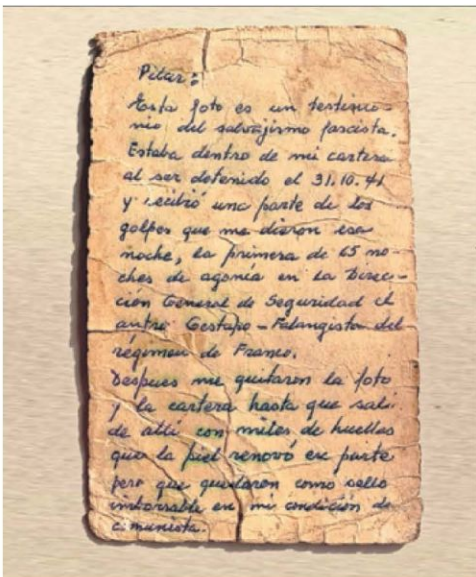 Pilar:
Esta foto es un testimo-
nio del salvajismo fascista.
Estaba dentro de mi cartera
al ser detenido el 31.10.41
y recibió una parte de los
golpes que me dieron esa
noche, la primera de 65 no-
ches de agonía en la Direc-
ción General de Seguridad el
antro Gestapo-Falangista del
régimen de Franco.
Despues me quitaron la foto
y la cartera hasta que salí
de allí con miles de huellas
que la piel renovó en parte
pero que quedaron como sello
imborrable en mi condición de
comunista.